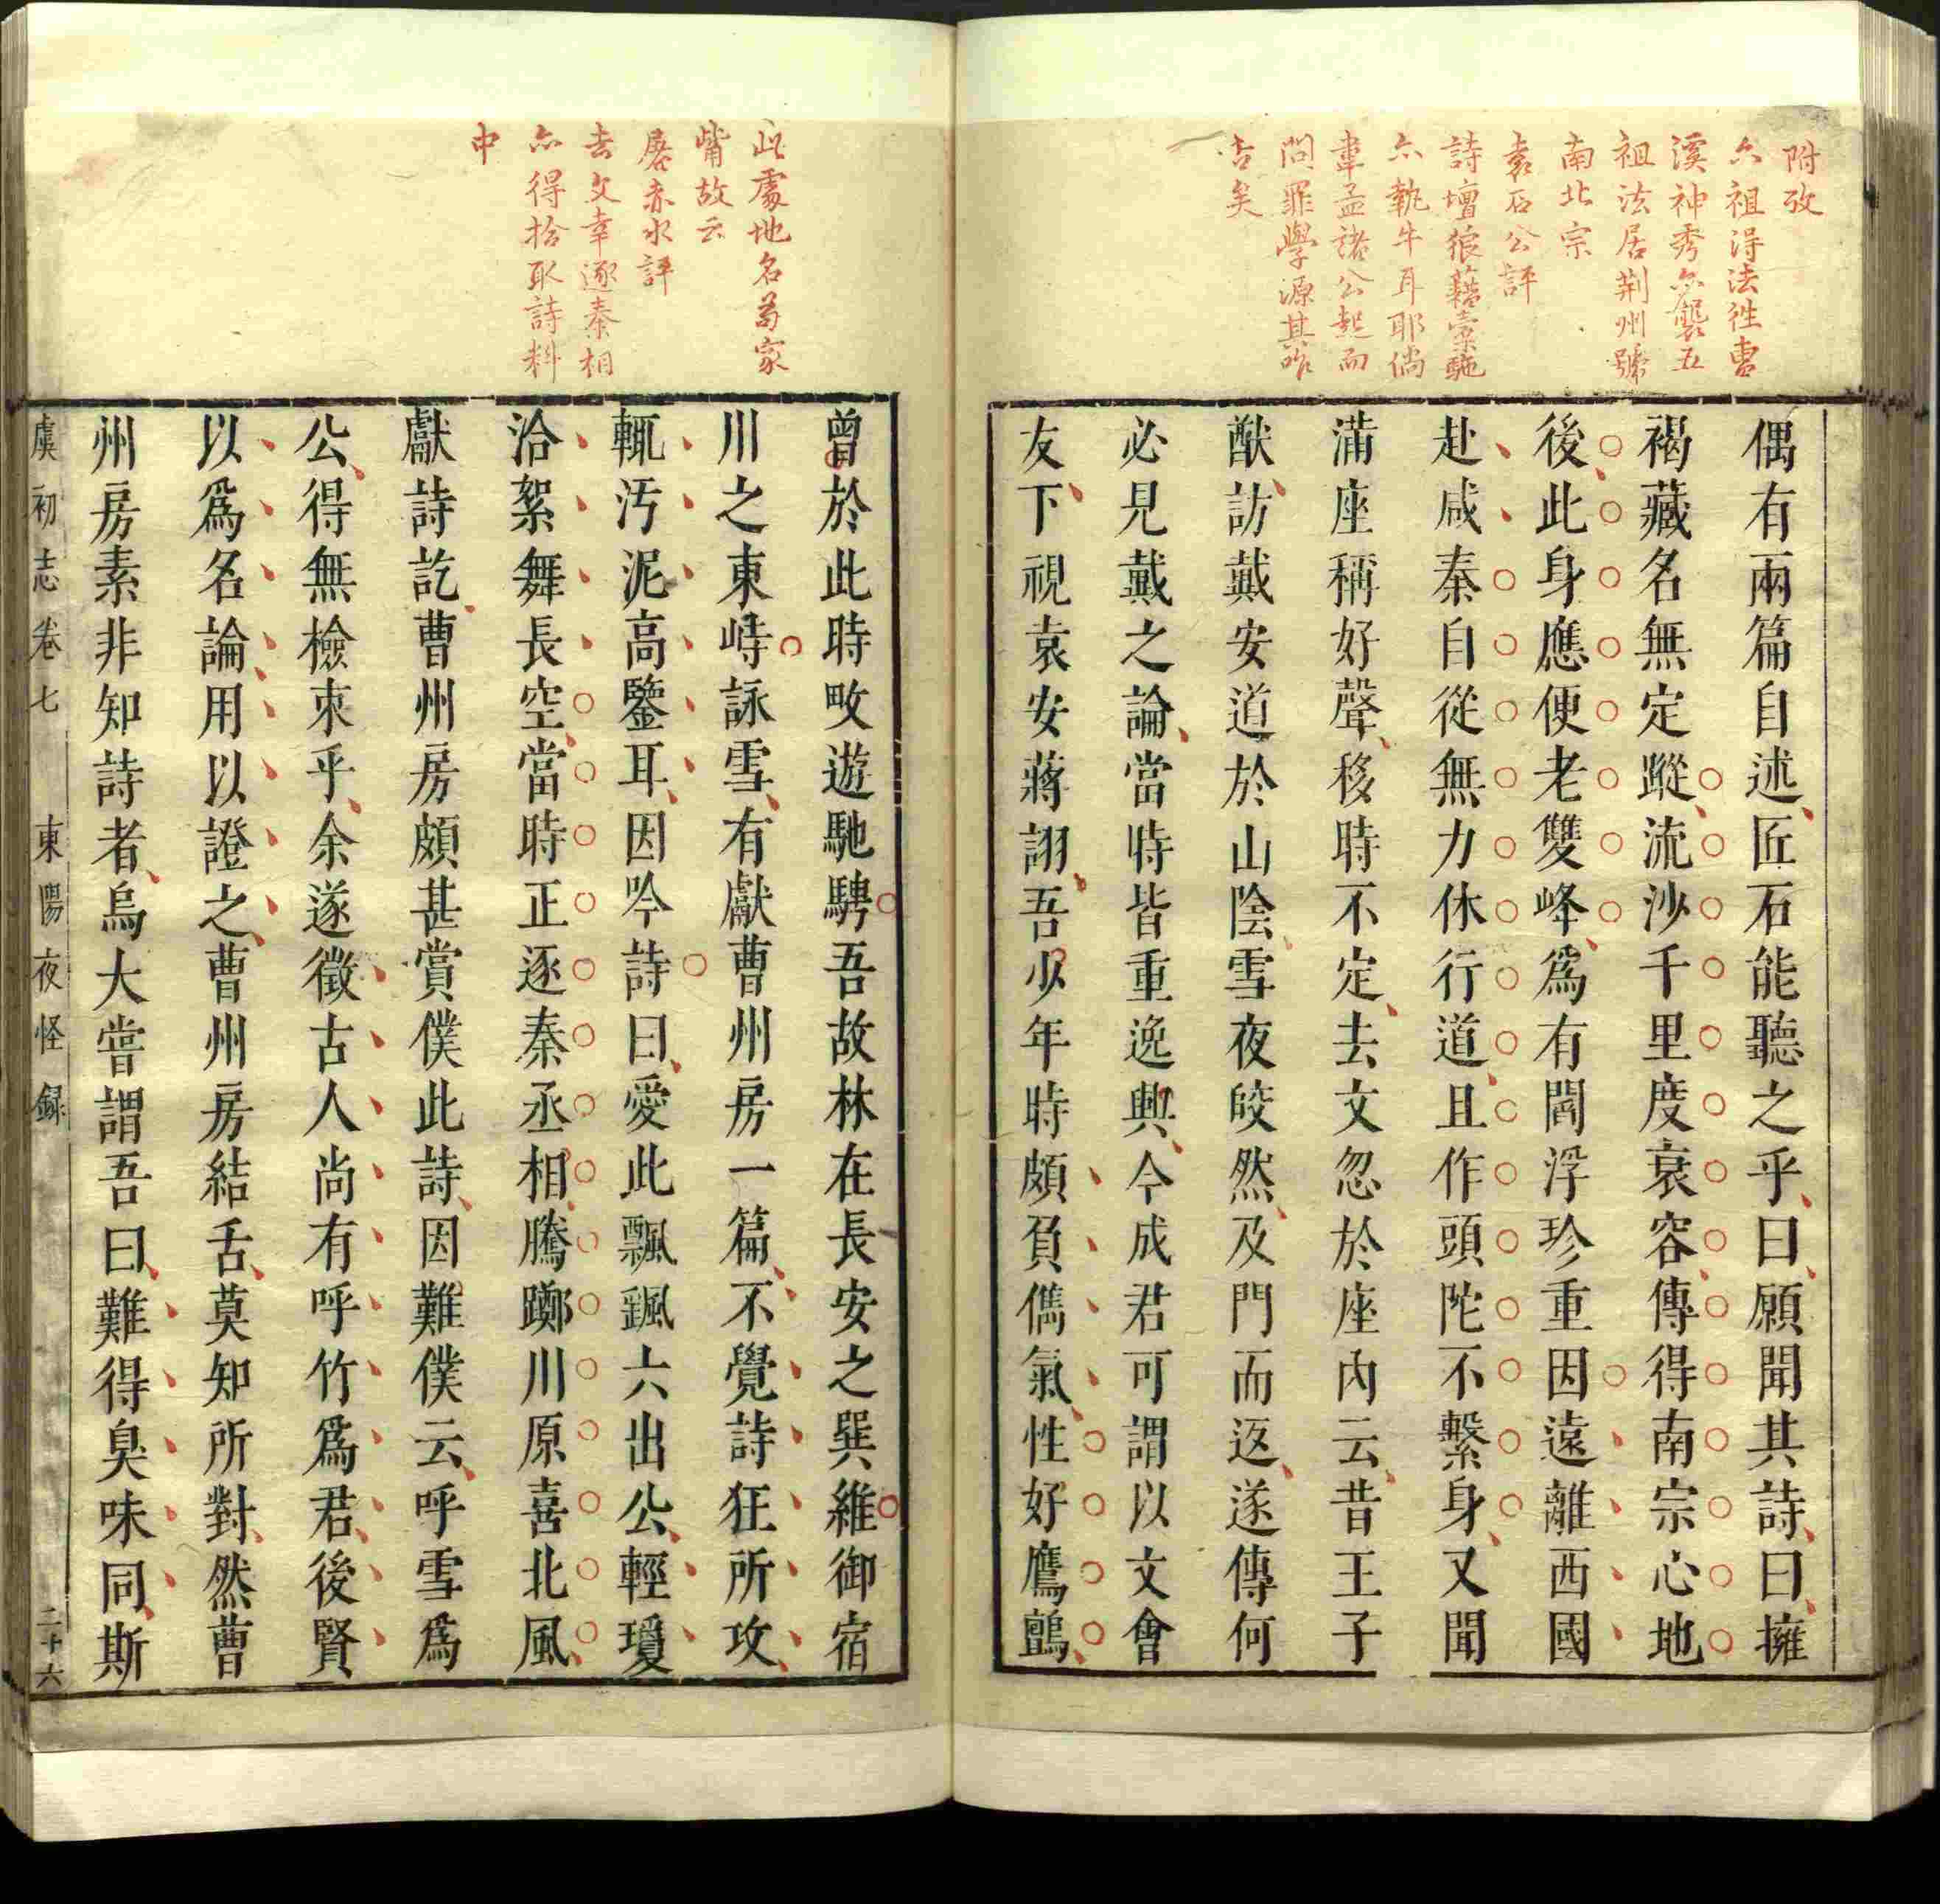 附攷
六祖得法徃曹
溪神秀亦襲五
祖法居荆州號
南北宗
袁石公評
詩壇狼藉橐駞
亦執牛耳耶倘
韋孟諸公起而
問罪學源其咋
舌矣
偶有兩篇自述匠石能聽之乎曰願聞其詩曰擁
褐藏名無定蹤流沙千里度衰容傳得南宗心地
後此身應便老雙峰爲有閻浮珍重因遠離西國
赴咸秦自從無力休行道且作頭陀不繫身又聞
滿座稱好聲移時不定去文忽於座內云昔王子
猷訪戴安道於山陰雪夜皎然及門而返遂傳何
必見戴之論當時皆重逸興今成君可謂以文會
友下視袁安蔣詡吾少年時頗負儁氣性好鷹鸇
此處地名苟家
觜故云
屠赤水評
去文幸逐秦相
亦得拾取詩料
中
曾於此時畋遊馳騁吾故林在長安之巽維御宿
川之東峙詠雪有獻曹州房一篇不覺詩狂所攻
輒汚泥高鑒耳因吟詩曰愛此飄颻六出公輕瓊
洽絮舞長空當時正逐秦丞相騰躑川原喜北風
獻詩訖曹州房頗甚賞僕此詩因難僕云呼雪爲
公得無檢束乎余遂徵古人尚有呼竹爲君後賢
以爲名論用以證之曹州房結舌莫知所對然曹
州房素非知詩者烏大嘗謂吾曰難得臭味同斯
虞初志卷七 東陽夜怪録 二十六